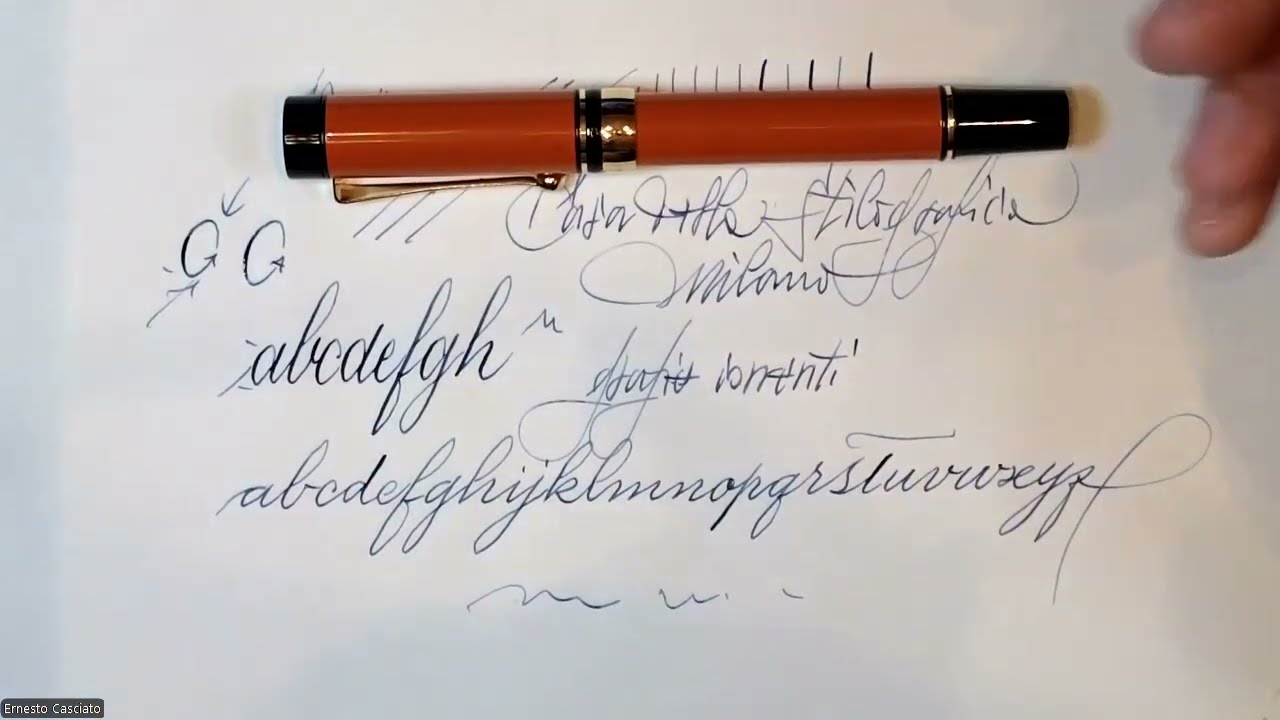 Casa della Stilografica
Milano
abcdefgh
n
abcdefghijklmnopqrstuvwxyz
Ernesto Casciato